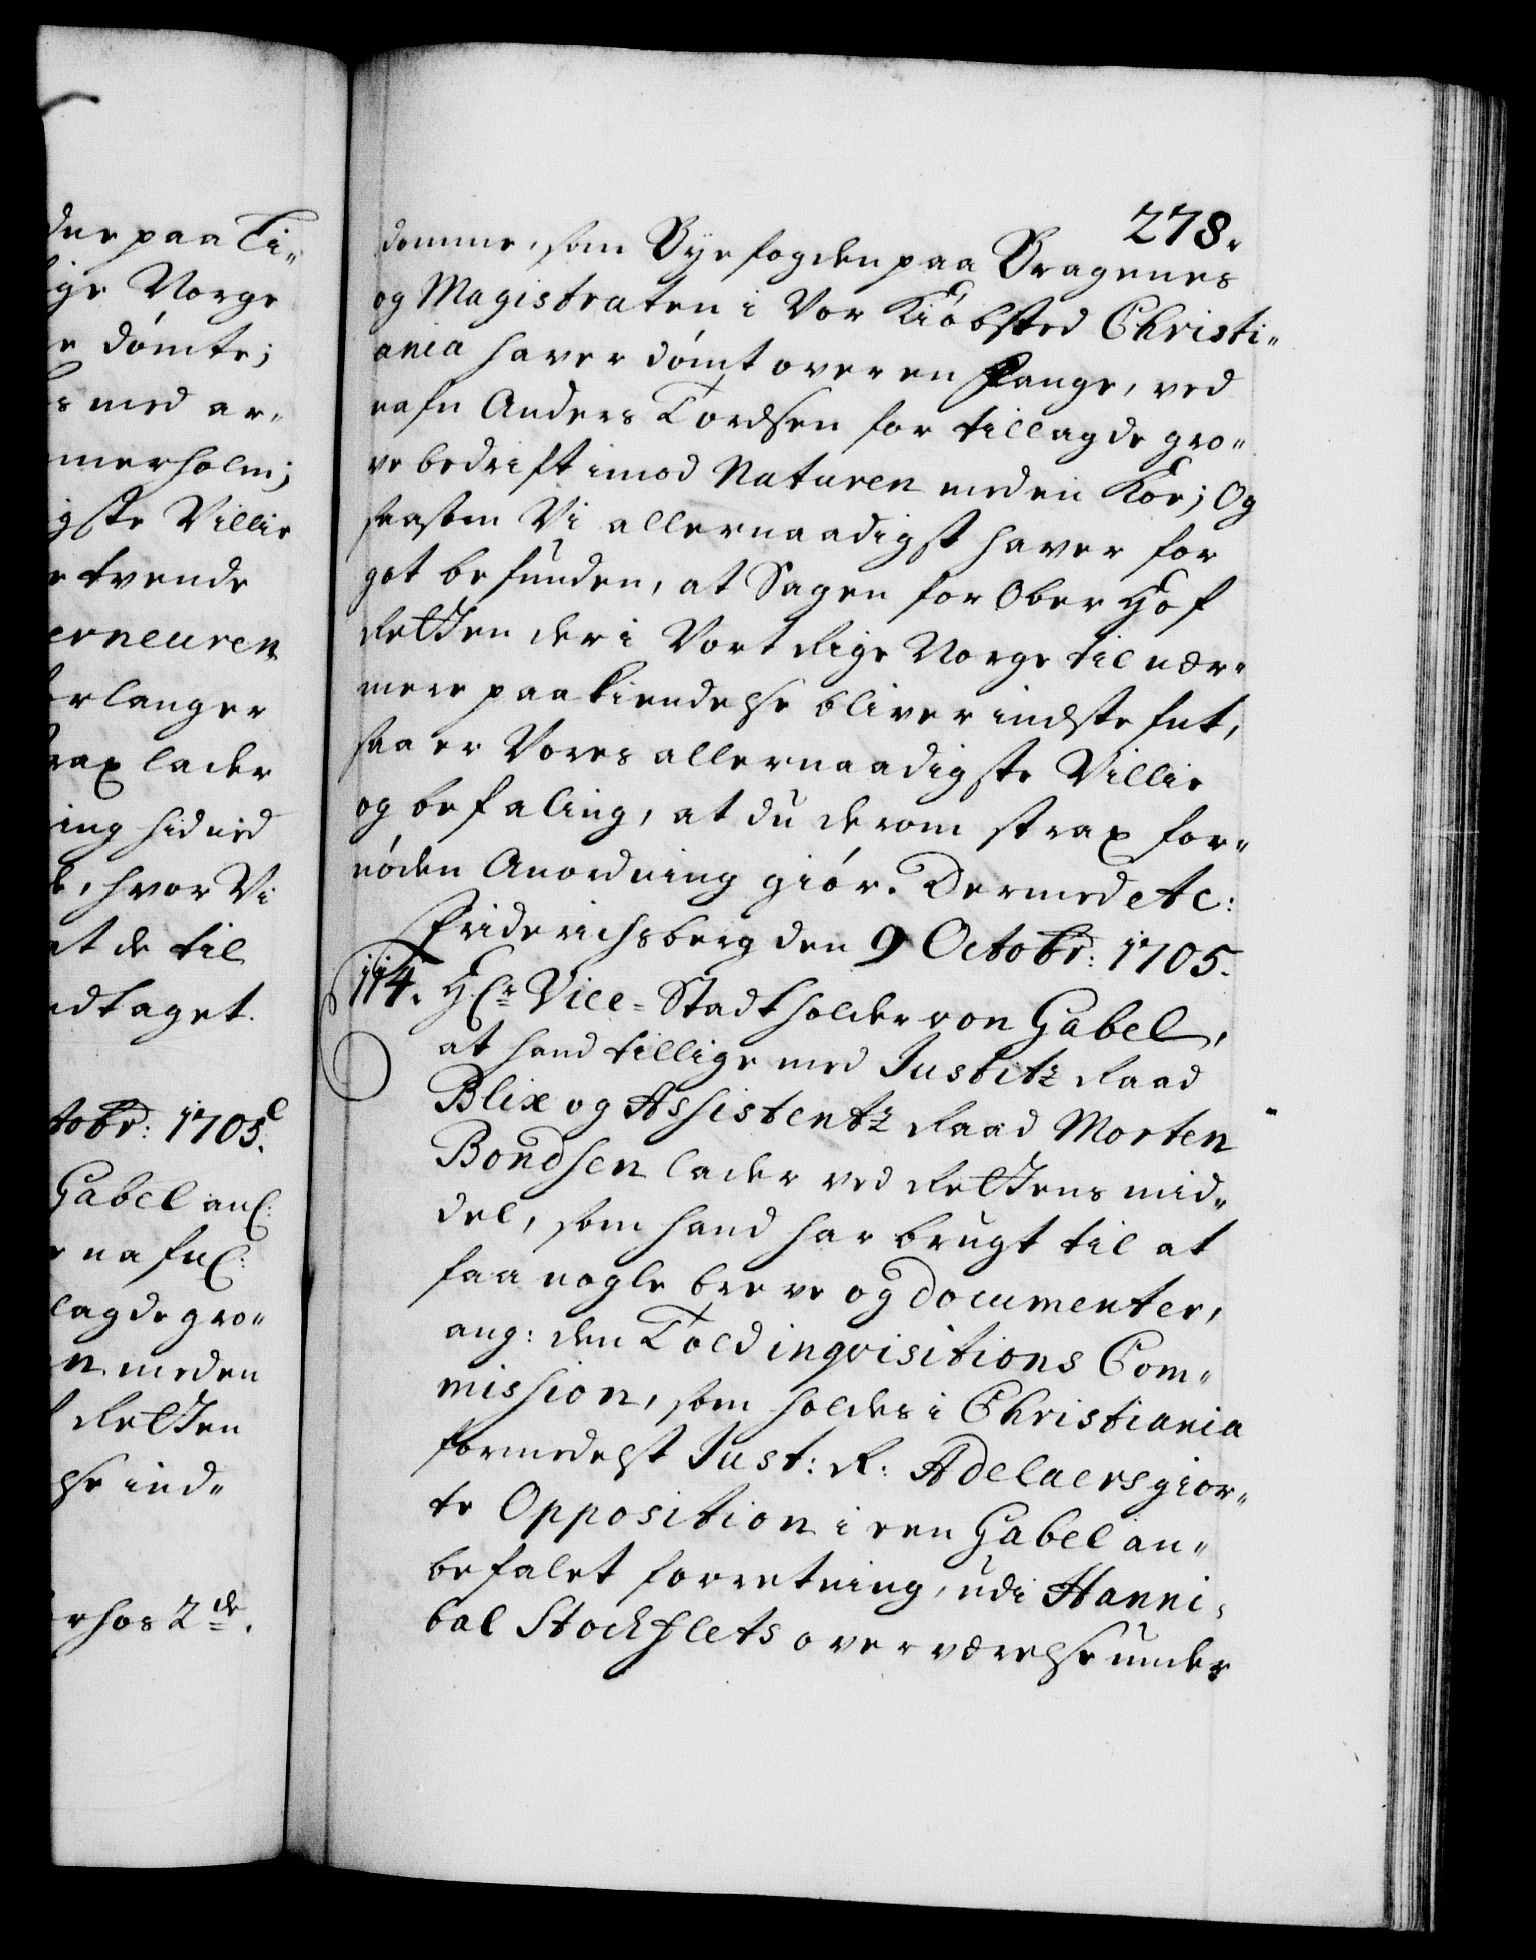 due paa Ti„
ige Norge
e dómte;
s med ar„
merholm;
gste Villie
e tvende
erneuren
erlanger
rax lader
ing hid ned
, hvor Vi
at de til
dtaget.
tobr: 1705.
Gabel an
nafn
lagde gro„
n med en
Retten
lse ind„
rhos 2de.
278.
domme, som Byefogden paa Bragenes
og Magistraten i Vor Kiöbsted Christi„
ania haver dömt over en Fange, ved
nafn Anders Tordsen for tillagde gro„
ve bedrift imod Naturen med en Koe; Og
saasom Vi allernaadigst haver for
got befunden, at Sagen for Ober Hof
Retten der i Vort Rige Norge til nær„
mere paakiendelse bliver indstefnt,
saa er Vores allernaadigste Villie
og befaling, at du derom strax for„
nöden Anordning giör. Dermed etc:
Friderichsberg den 9 Octobr: 1705.
114. Hr Vice=Stadtholder von Gabel,
at hand tillige med Justitz Raad
Blix og Assistentz Raad Morten
Bondsen lader ved Rettens mid„
del, som hand har brugt til at
faa nogle breve og documenter,
ang: den Told inqvisitions Com„
mission, som holdes i Christiania
formedelst Just: R: Adelaers gior„
te Opposition i een Gabel an„
befalet forretning, udi Hanni„
bal Stockflets overværelse under